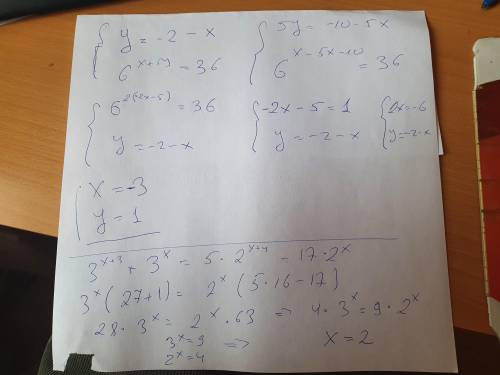 { y = -2 - x
6^{x+5y} = 36
{ 5y = -10 - 5x
6^{x-5x-10} = 36
{ 6^{2(-2x-5)} = 36
y = -2 - x
{ -2x - 5 = 1
y = -2 - x
{ 2x = -6
y = -2 - x
{ x = -3
y = 1
3^{x+3} + 3^x = 5 · 2^{x+4} - 17 · 2^x
3^x (27+1) = 2^x (5 · 16 - 17)
28 · 3^x = 2^x · 63 => 4 · 3^x = 9 · 2^x
3^x = 9
2^x = 4 => x = 2